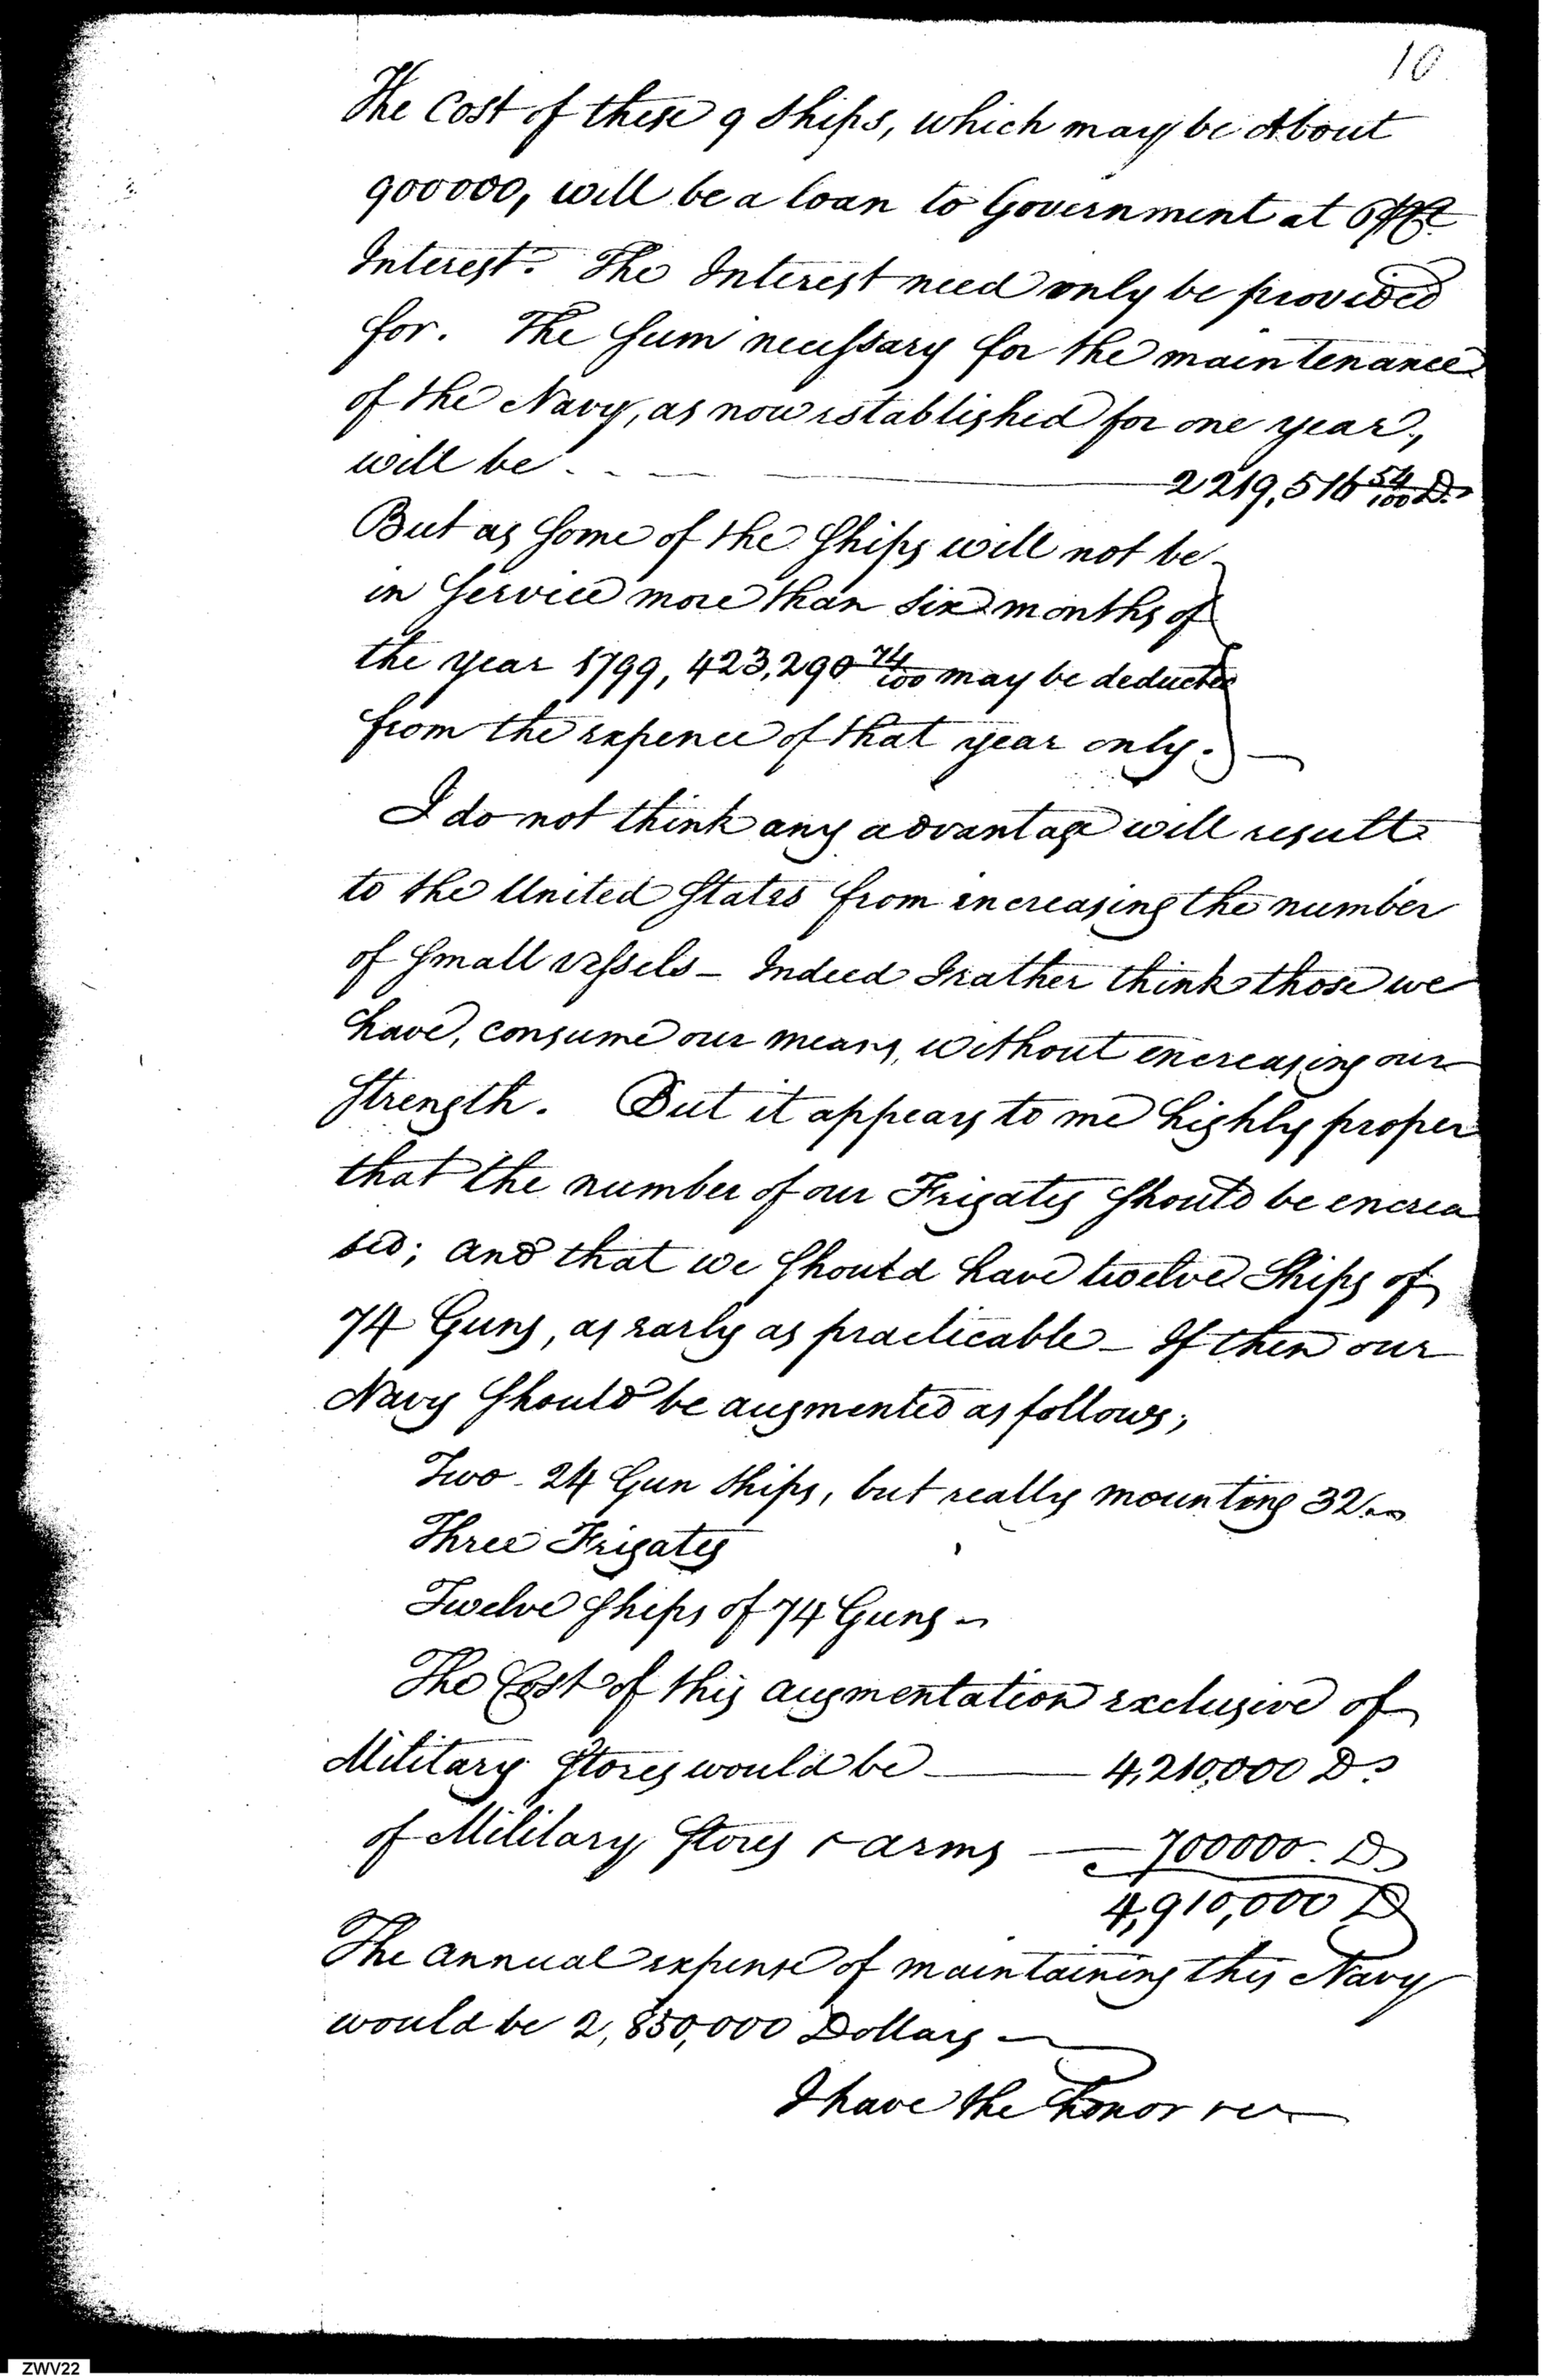 10
The Cost of these 9 Ships, which may be About
900000, will be a loan to Government at 6
Interest. The Interest need only be provided
for. The Sum necessary for the maintenance
of the Navy, as now established for one year,
will be - - - 2219,516 54/100 Ds
But as Some of the Ships will not be
in Service more than six months of
the year 1799, 423,290 74/100 may be deducted
from the expence of that year only. —
I do not think any advantage will result
to the United States from encreasing the number
of Small vessels - Indeed I rather think those we
have, consume our means, without encreasing our
Strength. But it appears to me highly proper
that the number of our Frigates Should be encrea
sed; and that we Should have twelve Ships of
74 Guns, as early as practicable - If then our
Navy Should be augmented as follows;
Two - 24 Gun Ships, but really mounting 32.
Three Frigates
Twelve Ships of 74 Guns -
The Cost of this augmentation exclusive of
Military Stores would be — 4,210,000 Ds
of Military Stores & arms — 700000. Ds
4,910,000 D
The annual expense of maintaining this Navy
would be 2,850,000 Dollars —
I have the honor &c
ZWV22